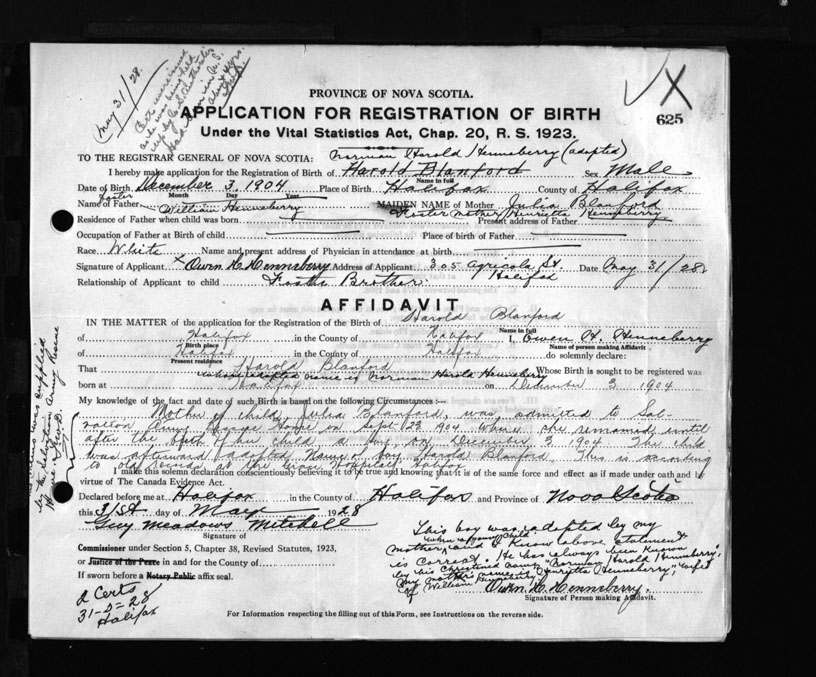 May 31/28.
X
625
PROVINCE OF NOVA SCOTIA.
APPLICATION FOR REGISTRATION OF BIRTH
Under the Vital Statistics Act, Chap. 20, R. S. 1923.
Norman Harold Henneberry (adopted)
TO THE REGISTRAR GENERAL OF NOVA SCOTIA:
I hereby make application for the Registration of Birth of Harold Blanford Sex Male
Name in full
Date of Birth December 3, 1904 Place of Birth Halifax County of Halifax
Month Day Year
Foster
Name of Father William Henneberry MAIDEN NAME of Mother Julia Blanford
Foster Mother Henrietta Henneberry
Residence of Father when child was born Present address of Father
Occupation of Father at Birth of child Place of birth of Father
Race White Name and present address of Physician in attendance at birth
Signature of Applicant x Owen H. Henneberry Address of Applicant 305 Agricola St. Halifax Date May 31/28
Relationship of Applicant to child Foster Brother
AFFIDAVIT
IN THE MATTER of the application for the Registration of the Birth of Harold Blanford
Name in full
of Halifax in the County of Halifax I, Owen H. Henneberry
Birth place Name of person making Affidavit
of Halifax in the County of Halifax do solemnly declare:
Present residence
That Harold Blanford Whose Birth is sought to be registered was
whose adopted name is Norman Harold Henneberry
born at Halifax on December 3 1904
My knowledge of the fact and date of such Birth is based on the following Circumstances :—
Mother of child, Julia Blanford, was admitted to Sal-
vation Army Rescue Home in Sept 23 1904 where she remained until
after the birth of her child a boy, on December 3 1904. The child
was afterward adopted. Name of boy Harold Blanford. This is according
to old records at the Grace Hospital, Halifax
I make this solemn declaration conscientiously believing it to be true and knowing that it is of the same force and effect as if made under oath and by
virtue of The Canada Evidence Act.
Declared before me at Halifax in the County of Halifax and Province of Nova Scotia
this 31st day of May 1928
Guy Meadows Mitchell
Signature of
Commissioner under Section 5, Chapter 38, Revised Statutes, 1923,
or Justice of the Peace in and for the County of
If sworn before a Notary Public affix seal.
This boy was adopted by my
when a young child
mother, and I know above statement
is correct. He has always been known
by his Christened name "Norman Harold Henneberry"
My mother's name "Henrietta Henneberry," wife
of William Henneberry
Owen H. Henneberry
Signature of Person making Affidavit.
2 Certs
31-5-28
Halifax
For Information respecting the filling out of this Form, see Instructions on the reverse side.